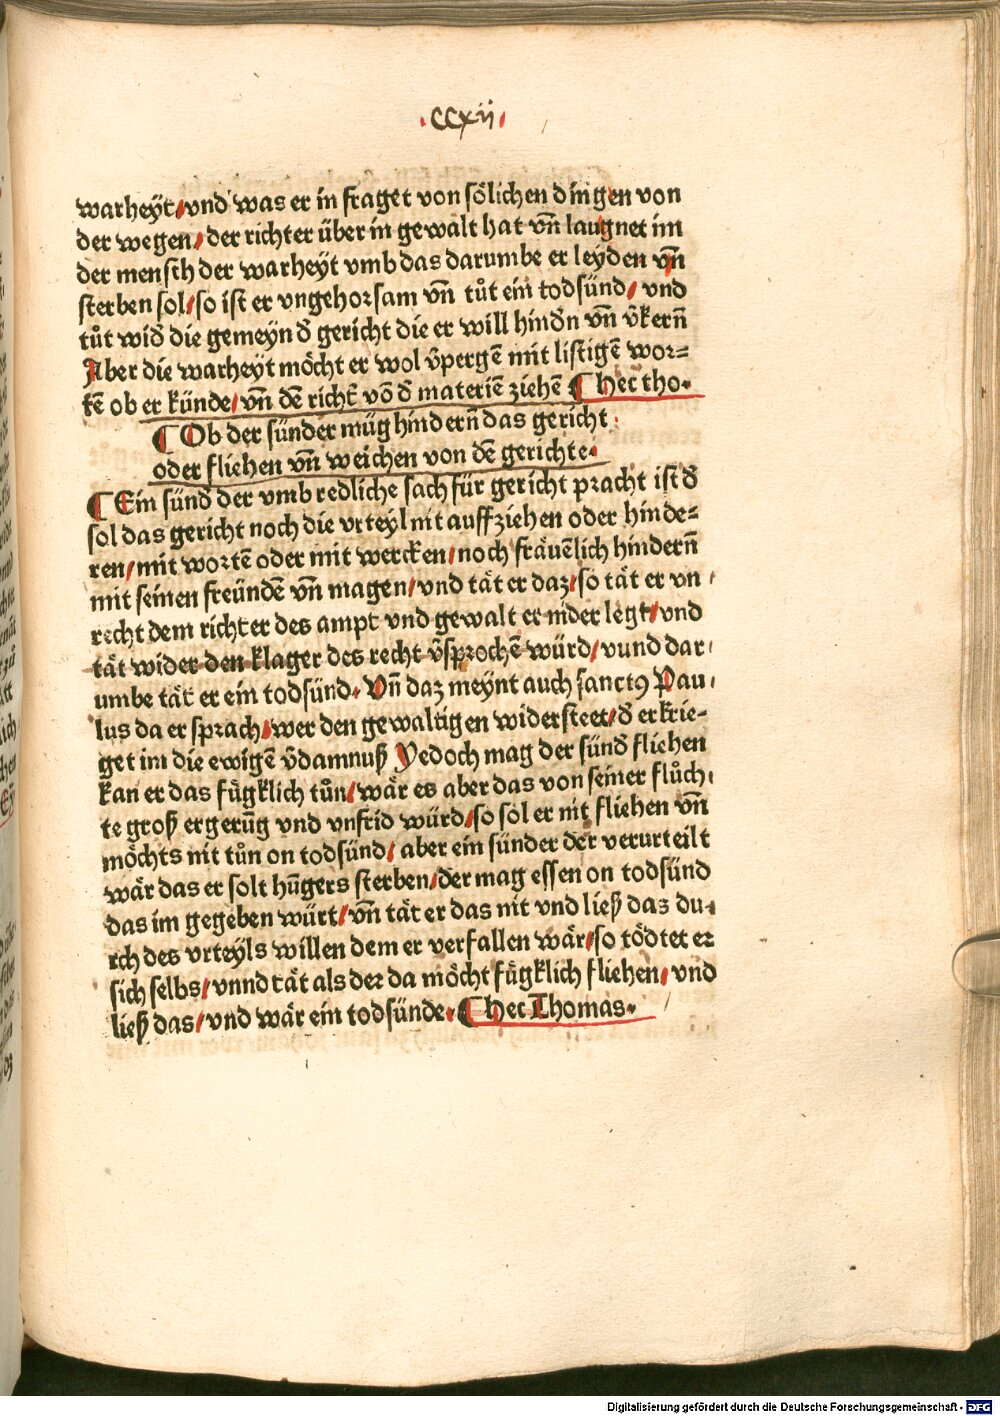 ·ccxij·
warheÿt/vnd was er in fraget von sölichen dingen von
der wegen/der richter über in gewalt hat vn̄ laugnet im
der mensch der warheÿt vmb das darumbe er leyden vn̄
sterben sol/so ist er vngehorsam vn̄ tůt ein todsünd/vnd
tůt wid̕ die gemeyn d̕ gericht die er will hind̕n vn̄ v̄kern̄
Aber die warheyt möcht er wol v̄pergē mit listigē wor⸗
tē ob er künde/vn̄ dē richt̕ vō d̕ materiē ziehē ¶ hec tho.
¶ Ob der sünder müg hindern̄ das gericht
oder fliehen vn̄ weichen von dē gerichte.
¶ Ein sünd̕ der vmb redliche sach für gericht pracht ist d̕
sol das gericht noch die vrteyl nit auffziehen oder hinde⸗
ren/mit wortē oder mit wercken/noch fräuēlich hindern̄
mit seinen freündē vn̄ magen/vnd tät er daz/so tät er vn
recht dem richter des ampt vnd gewalt er nider legt/vnd
tät wider den klager des recht v̄sprochē würd/vund dar
umbe tät er ein todsünd. Vn̄ daz meynt auch sanctꝰ Pau
lus da er sprach/wer den gewaltigen widersteet/d̕ erkrie⸗
get im die ewigē v̄damnuß Yedoch mag der sünd̕ fliehen
kan er das fügklich tůn/wär es aber das von seiner flůch
te groß ergerūg vnd vnfrid würd/so sol er nit fliehen vn̄
möchts nit tůn on todsünd/aber ein sünder der verurteilt
wär das er solt hūgers sterben/der mag essen on todsünd
das im gegeben würt/vn̄ tät er das nit vnd ließ daz du⸗
rch des vrteyls willen dem er verfallen wär/so tödtet er
sich selbs/vnnd tät als der da möcht fügklich fliehen/vnd
ließ das/vnd wär ein todsünde. ¶ hec Thomas.
Digitalisierung gefördert durch die Deutsche Forschungsgemeinschaft - DFG